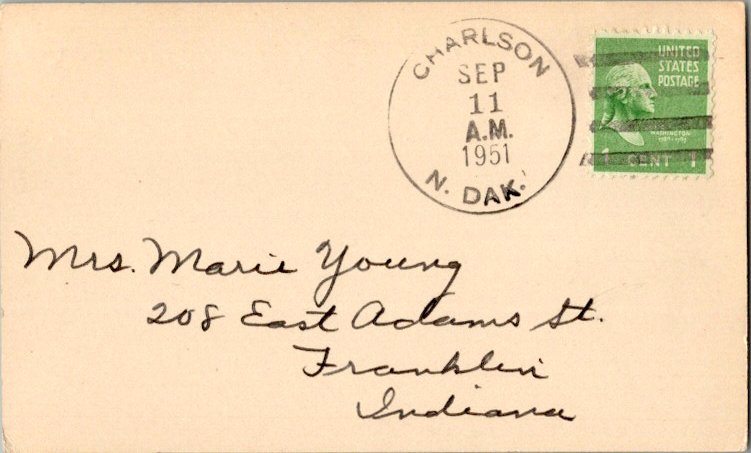 CHARLSON
SEP
11
A.M.
1951
N. DAK.
UNITED
STATES
POSTAGE
WASHINGTON
1 CENT 1
Mrs. Marie Young
208 East Adams St.
Franklin
Indiana